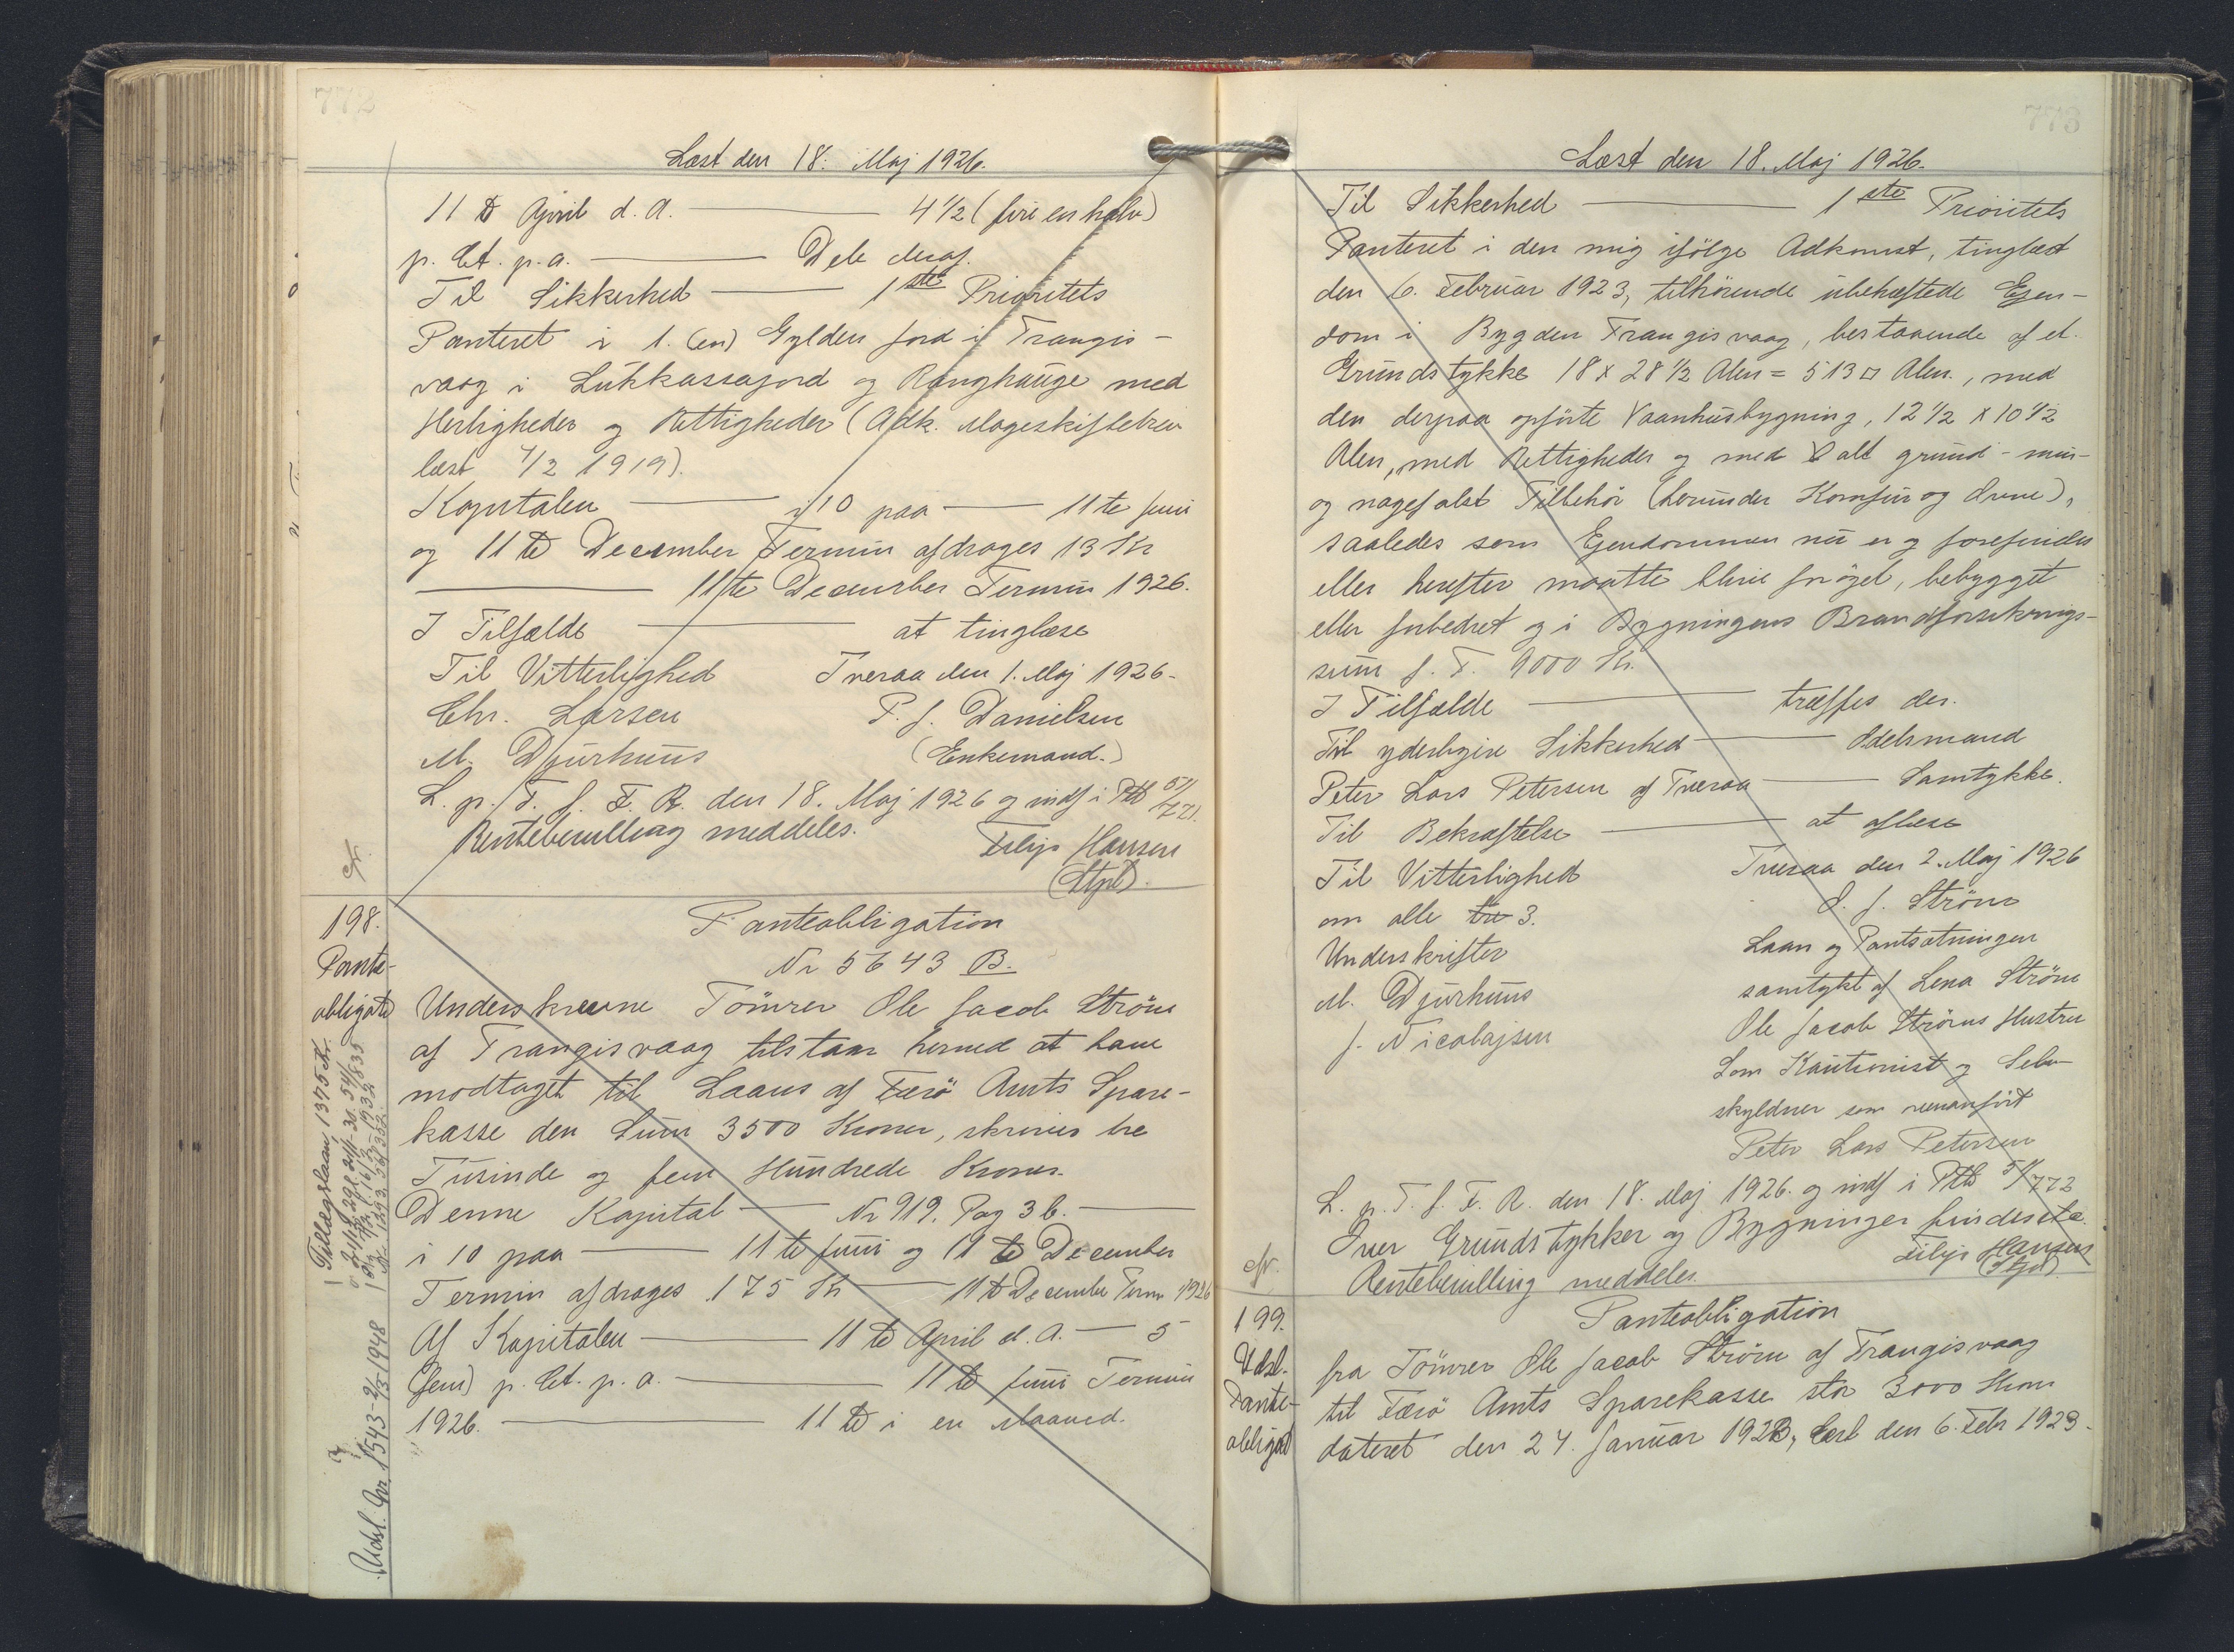 772
Læst den 18. Maj 1926.
11 te April d. A. ——— 4 1/2 (fire en halv)
p. Ct. p. a. ——— Dele deraf.
Til Sikkerhed ——— 1ste Prioritets
Panteret i 1. (en) Gylden Jord i Trangis-
vaag i Lükkassajord og Ranghauge med
Herligheder og Rettigheder (Adk. Mageskiftebrev
læst 4/2 1919).
Kapitalen ——— i 10 paa ——— 11te Juni
og 11te December Termin afdrages 13 Kr
——— 11te December Termin 1926.
I Tilfælde ——— at tinglæse
Til Vitterlighed Tveraa den 1. Maj 1926.
Chr. Larsen P. J. Danielsen
M. Djurhuus (Enkemand.)
L. p. T. f. F. R. den 18. Maj 1926 og indf i Ptb 51/771.
Rentebevilling meddeles. Filip Hansen
cfr. (Stpl).
198.
Pante-
obligati
Panteobligation
Nr 5643 B.
Underskrevne Tömrer Ole Jacob Ström
af Trangisvaag tilstaar herved at have
modtaget til Laans af Færö Amts Spare-
kasse den Sum 3500 Kroner, skriver tre
Tusinde og fem Hundrede Kroner.
Denne Kapital ——— Nr 919. Pag 36. ———
i 10 paa ——— 11te Juni og 11te December
Termin afdrages 175 Kr ——— 11te December Term 1926
Af Kapitalen ——— 11te April d. A. — 5
(fem) p. Ct. p. a. ——— 11te Juni Termin
1926. ——— 11te i en Maaned.
Tillægslaan 1375 Kr.
Udsl. Gvr. 1543-2/3-1948
773
Læst den 18. Maj 1926.
Til Sikkerhed ——— 1ste Prioritets
Panteret i den mig ifölge Adkomst, tinglæst
den 6. Februar 1923, tilhörende ubehæftede Ejen-
dom i Bygden Trangisvaag, bestaaende af et
Grundstykke 18 x 28 1/2 Alen = 513 □ Alen., med
den derpaa opförte Vaanhusbygning, 12 1/2 x 10 1/2
Alen, med Rettigheder og med alt grund- mur-
og nagelfast Tilbehör (herunder Komfur og Ovne),
saaledes som Ejendommen nu er og forefindes
eller herefter maatte blive foröget, bebygget
eller forbedret og i Bygningens Brandforsikrings-
sum f. T. 9000 Kr.
I Tilfælde ——— træffes der.
Til yderligere Sikkerhed ——— Odelsmand
Peter Lars Petersen af Tveraa ——— Samtykke.
Til Bekræftelse ——— at aflæse
Til Vitterlighed Tveraa den 2. Maj 1926
om alle tre 3. O. J. Ström
Underskrifter Laan og Pantsætningen
M. Djurhuus samtykt af Lena Ström
J. Nicolajsen Ole Jacob Ströms Hustru
Som Kautionist og Selv-
skyldner som ovenanfört
Peter Lars Petersen
L. p. T. f. F. R. den 18. Maj 1926. og indf i Ptb 51/772
Over Grundstykker og Bygninger findes etc.
cfr. Rentebevilling meddeles. Filip Hansen
(Stpl)
199.
Udsl.
Pante-
obligat
Panteobligation
fra Tömrer Ole Jacob Ström af Trangisvaag
til Færö Amts Sparekasse stor 3000 Kron
dateret den 24. Januar 1923, læst den 6. Febr 1923.